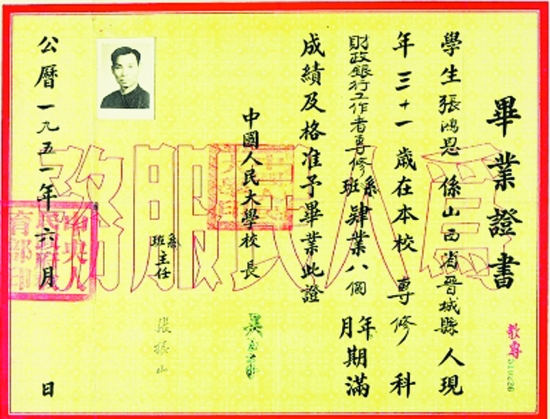 畢業證書
學生張鴻恩係山西省晉城縣人現
年三十一歲在本校專修科
財政銀行工作者專修系班肄業八個年月期滿
成績及格准予畢業此證
中國人民大學校長
系班主任
張振山
公曆一九五一年六月 日
為人民服務
教專